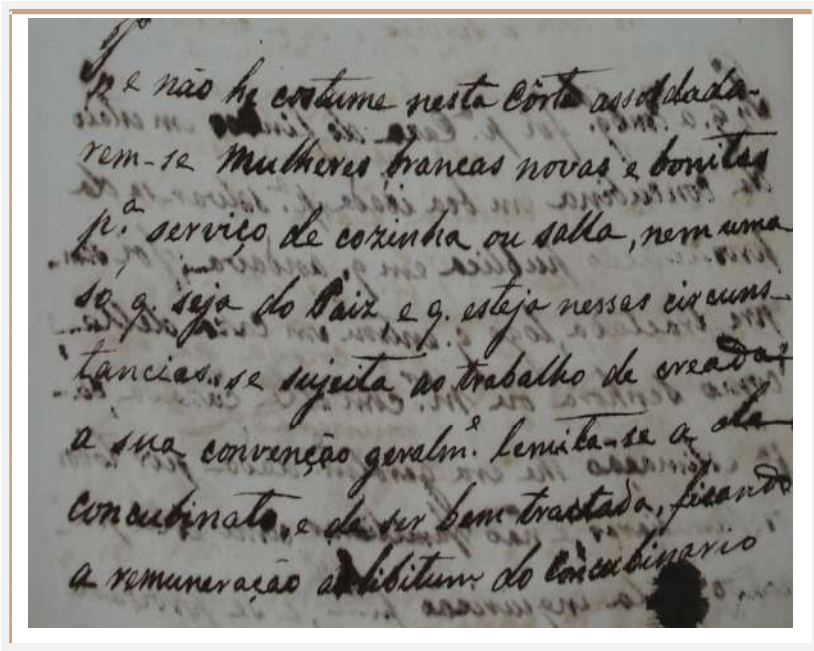 e não he costume nesta Côrte assoldada-
rem-se mulheres brancas novas e bonitas
p.ª serviço de cozinha ou salla, nem uma
só q. seja do Paiz, e q. esteja nessas circuns-
tancias, se sujeita ao trabalho de creada:
a sua convenção geralm.e lemita-se a de
concubinato, e de ser bem tractada, ficando
a remuneração ad libitum do concubinario